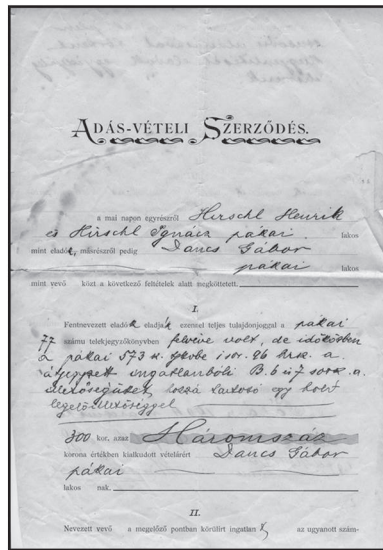 ADÁS-VÉTELI SZERZŐDÉS.
a mai napon egyrészről Hirschl Henrik
és Hirschl Ignácz pákai lakos
mint eladók, másrészről pedig Dancs Gábor
pákai lakos
mint vevő közt a következő feltételek alatt megköttetett.
I.
Fentnevezett eladók eladják ezennel teljes tulajdonjoggal a pákai
77 számu telekjegyzőkönyvben felvéve volt, de időközben
a pákai 573 sz. tjkvbe I sor. 96 hrsz. a.
átjegyzett ingatlanból B. 6 és 7 sorsz. a.
illetőségüket, hozzá tartozó egy holt
legelő illetőséggel
300 kor, azaz Háromszáz
korona értékben kialkudott vételárért Dancs Gábor
pákai
lakos nak.
II.
Nevezett vevő a megelőző pontban körülirt ingatlan az ugyanott szám-